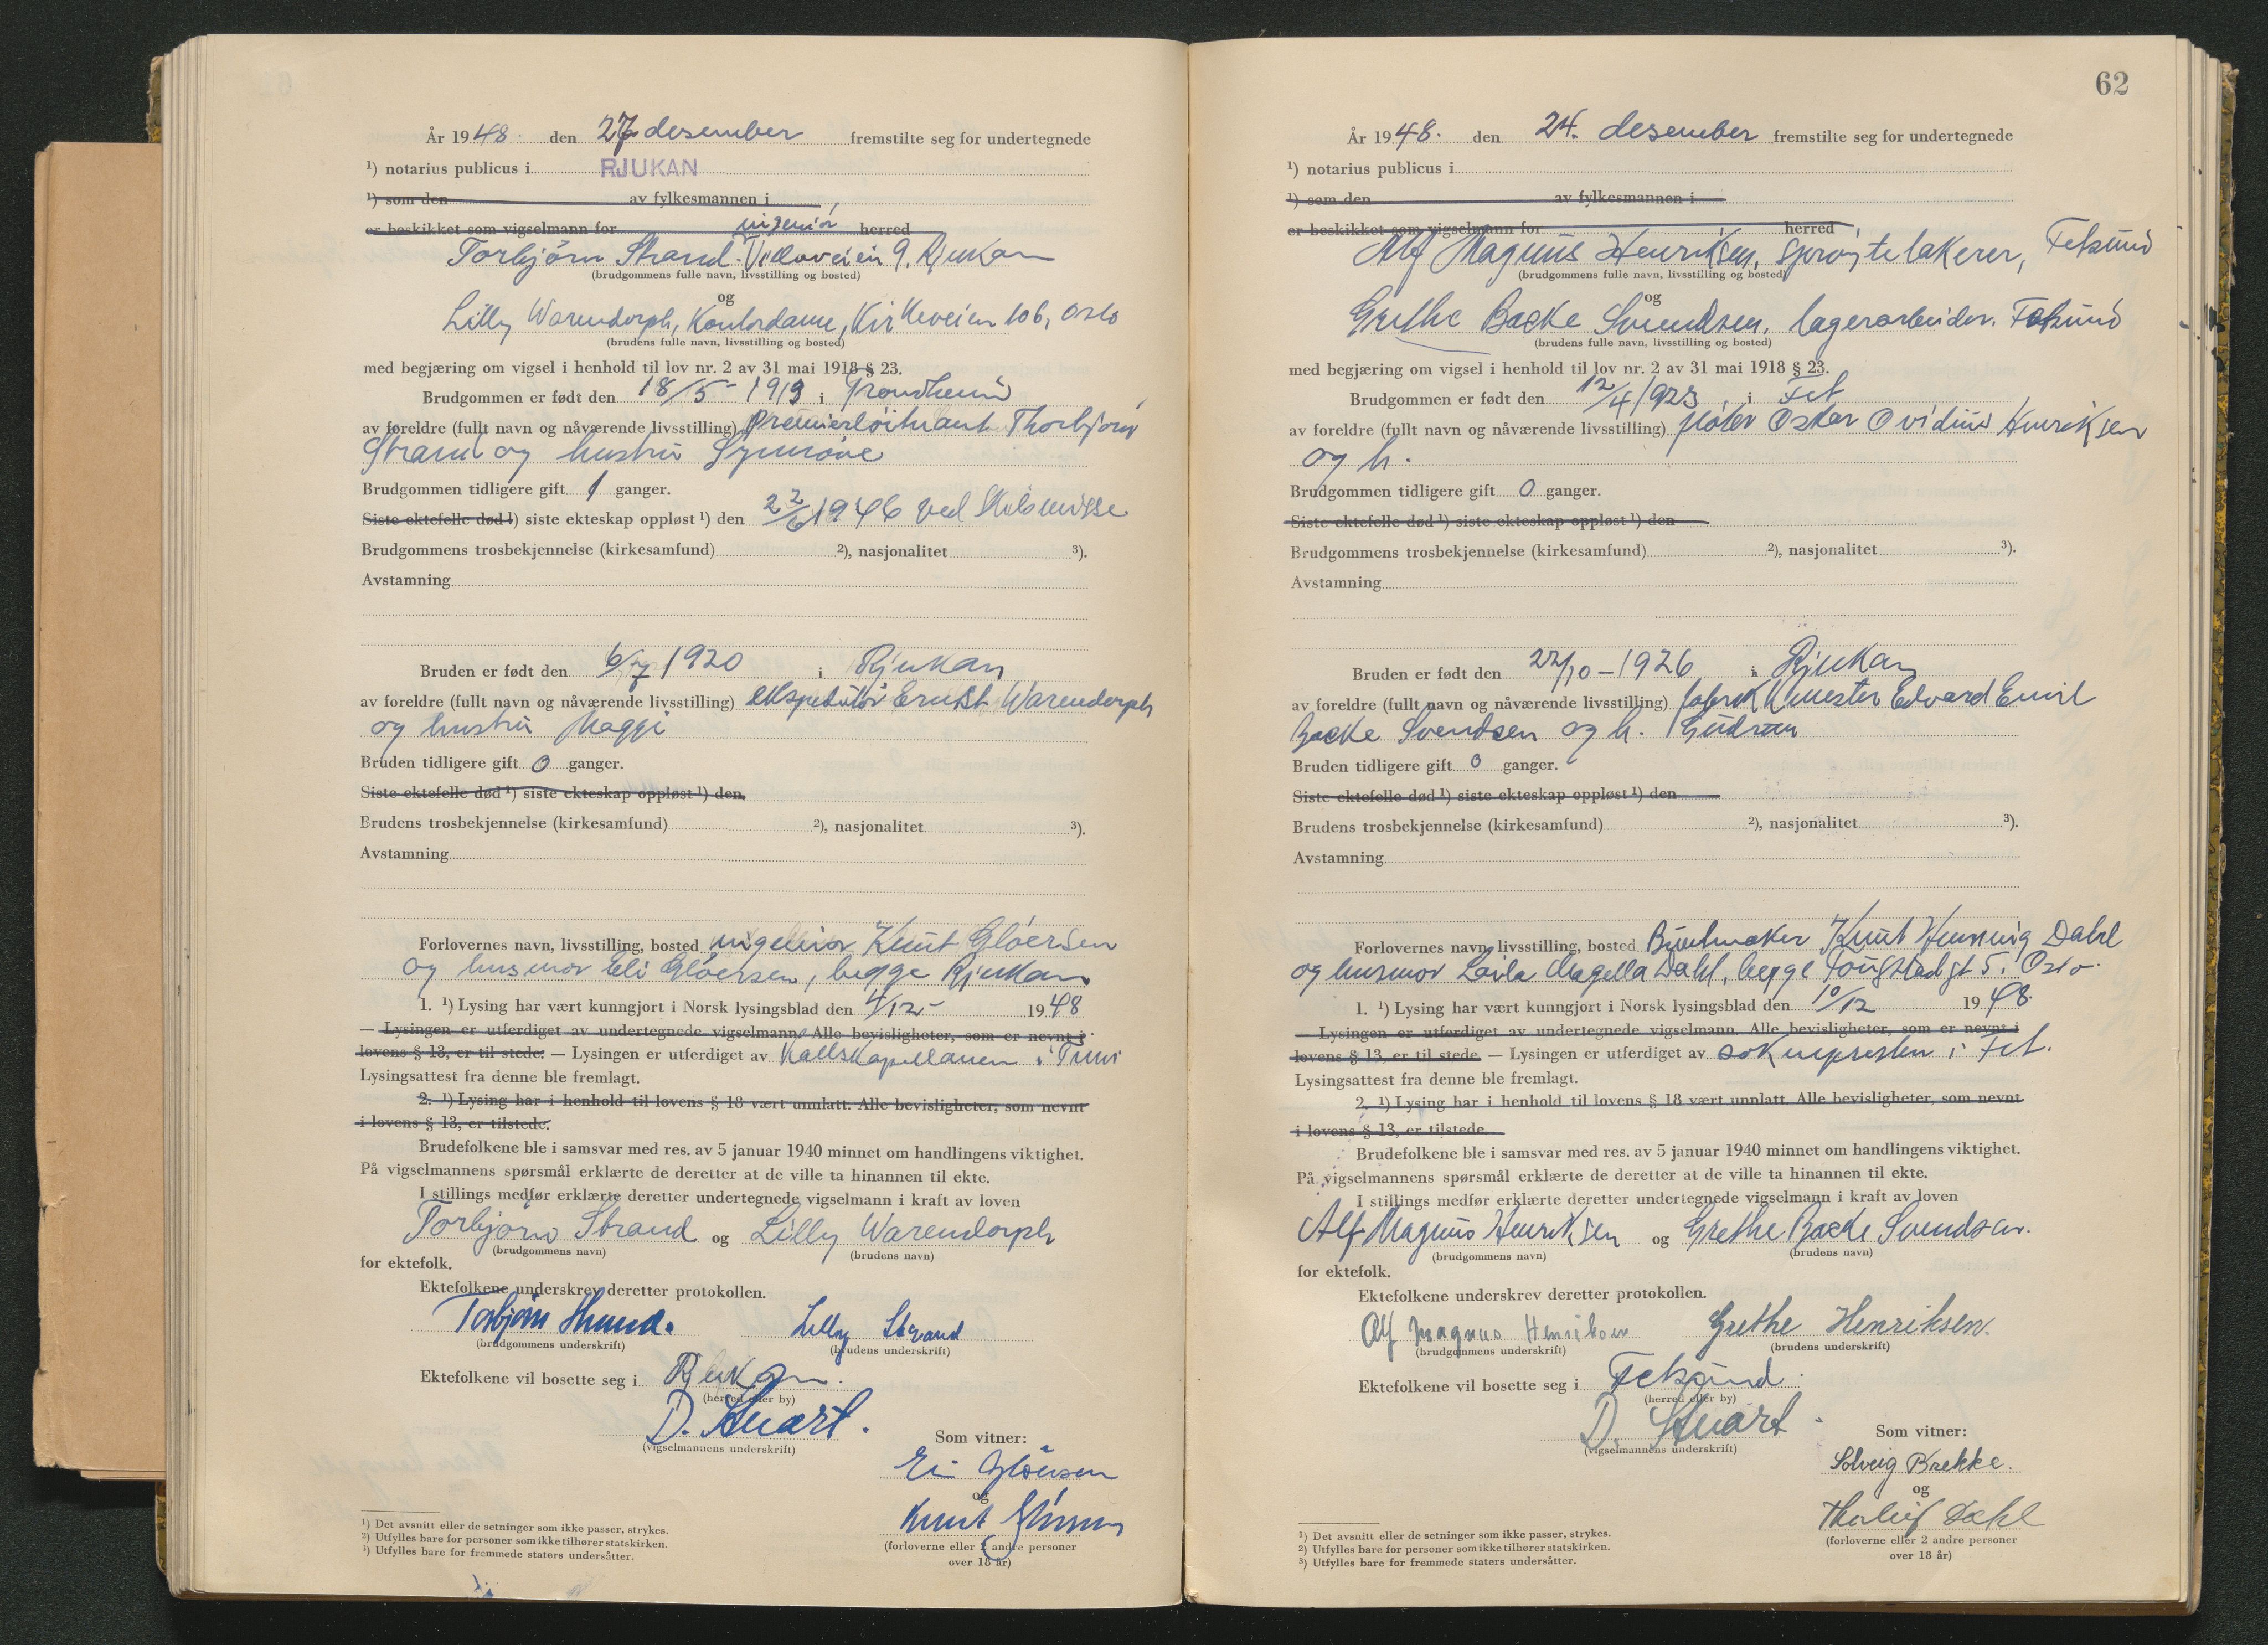 År 1948. den 27 desember fremstilte seg for undertegnede
¹) notarius publicus i RJUKAN
¹) som den av fylkesmannen i
er beskikket som vigselmann for herred
ingeniør
Torbjørn Strand. Villaveien 9, Rjukan
(brudgommens fulle navn, livsstilling og bosted)
og
Lilly Warendorph, Kontordame, Kirkeveien 106, Oslo
(brudens fulle navn, livsstilling og bosted)
med begjæring om vigsel i henhold til lov nr. 2 av 31 mai 1918 § 23.
Brudgommen er født den 18/5 - 1919 i Trondheim
av foreldre (fullt navn og nåværende livsstilling) premierløitnant Thorbjørn
Strand og hustru Synnøve
Brudgommen tidligere gift 1 ganger.
Siste ektefelle død ¹) siste ekteskap oppløst ¹) den 22/6 1946 ved Skilsmisse
Brudgommens trosbekjennelse (kirkesamfund) ²), nasjonalitet ³).
Avstamning
Bruden er født den 6/7 1920 i Rjukan
av foreldre (fullt navn og nåværende livsstilling) ekspeditør Ernst Warendorph
og hustru Maggi
Bruden tidligere gift 0 ganger.
Siste ektefelle død ¹) siste ekteskap oppløst ¹) den
Brudens trosbekjennelse (kirkesamfund) ²), nasjonalitet ³).
Avstamning
Forlovernes navn, livsstilling, bosted ingeniør Knut Gløersen
og husmor Eli Gløersen, begge Rjukan
1. ¹) Lysing har vært kunngjort i Norsk lysingsblad den 4/12 - 1948
— Lysingen er utferdiget av undertegnede vigselmann. Alle bevisligheter, som er nevnt i
lovens § 13, er til stede. — Lysingen er utferdiget av Kallskapellanen i Tinn
Lysingsattest fra denne ble fremlagt.
2. ¹) Lysing har i henhold til lovens § 18 vært unnlatt. Alle bevisligheter, som nevnt
i lovens § 13, er tilstede.
Brudefolkene ble i samsvar med res. av 5 januar 1940 minnet om handlingens viktighet.
På vigselmannens spørsmål erklærte de deretter at de ville ta hinannen til ekte.
I stillings medfør erklærte deretter undertegnede vigselmann i kraft av loven
Torbjørn Strand og Lilly Warendorph
(brudgommens navn) (brudens navn)
for ektefolk.
Ektefolkene underskrev deretter protokollen.
Torbjørn Strand. Lilly Strand
(brudgommens underskrift) (brudens underskrift)
Ektefolkene vil bosette seg i Rjukan.
(herred eller by)
D. Stuart.
(vigselmannens underskrift)
Som vitner:
Eli Gløersen
og
Knut Gløersen
(forloverne eller 2 andre personer
over 18 år)
¹) Det avsnitt eller de setninger som ikke passer, strykes.
²) Utfylles bare for personer som ikke tilhører statskirken.
³) Utfylles bare for fremmede staters undersåtter.
62
År 1948. den 24. desember fremstilte seg for undertegnede
¹) notarius publicus i
¹) som den av fylkesmannen i
er beskikket som vigselmann for herred
Alf Magnus Henriksen, sprøytelakerer, Fetsund
(brudgommens fulle navn, livsstilling og bosted)
og
Grethe Backe Svendsen, lagerarbeider. Fetsund
(brudens fulle navn, livsstilling og bosted)
med begjæring om vigsel i henhold til lov nr. 2 av 31 mai 1918 § 23.
Brudgommen er født den 12/4 1923 i Fet
av foreldre (fullt navn og nåværende livsstilling) fløter Oskar Ovidius Henriksen
og h.
Brudgommen tidligere gift 0 ganger.
Siste ektefelle død ¹) siste ekteskap oppløst ¹) den
Brudgommens trosbekjennelse (kirkesamfund) ²), nasjonalitet ³).
Avstamning
Bruden er født den 22/10 - 1926 i Rjukan
av foreldre (fullt navn og nåværende livsstilling) fabrikkmester Edvard Emil
Backe Svendsen og h. Gudrun
Bruden tidligere gift 0 ganger.
Siste ektefelle død ¹) siste ekteskap oppløst ¹) den
Brudens trosbekjennelse (kirkesamfund) ²), nasjonalitet ³).
Avstamning
Forlovernes navn, livsstilling, bosted Buntmaker Knut Henning Dahl
og husmor Laila Magella Dahl, begge gt 5, Oslo.
1. ¹) Lysing har vært kunngjort i Norsk lysingsblad den 10/12 1948.
— Lysingen er utferdiget av undertegnede vigselmann. Alle bevisligheter, som er nevnt i
lovens § 13, er til stede. — Lysingen er utferdiget av soknepresten i Fet.
Lysingsattest fra denne ble fremlagt.
2. ¹) Lysing har i henhold til lovens § 18 vært unnlatt. Alle bevisligheter, som nevnt
i lovens § 13, er tilstede.
Brudefolkene ble i samsvar med res. av 5 januar 1940 minnet om handlingens viktighet.
På vigselmannens spørsmål erklærte de deretter at de ville ta hinannen til ekte.
I stillings medfør erklærte deretter undertegnede vigselmann i kraft av loven
Alf Magnus Henriksen og Grethe Backe Svendsen.
(brudgommens navn) (brudens navn)
for ektefolk.
Ektefolkene underskrev deretter protokollen.
Alf Magnus Henriksen Grethe Henriksen.
(brudgommens underskrift) (brudens underskrift)
Ektefolkene vil bosette seg i Fetsund.
(herred eller by)
D. Stuart
(vigselmannens underskrift)
Som vitner:
Solveig Brekke.
og
Thorleif Dahl
(forloverne eller 2 andre personer
over 18 år)
¹) Det avsnitt eller de setninger som ikke passer, strykes.
²) Utfylles bare for personer som ikke tilhører statskirken.
³) Utfylles bare for fremmede staters undersåtter.